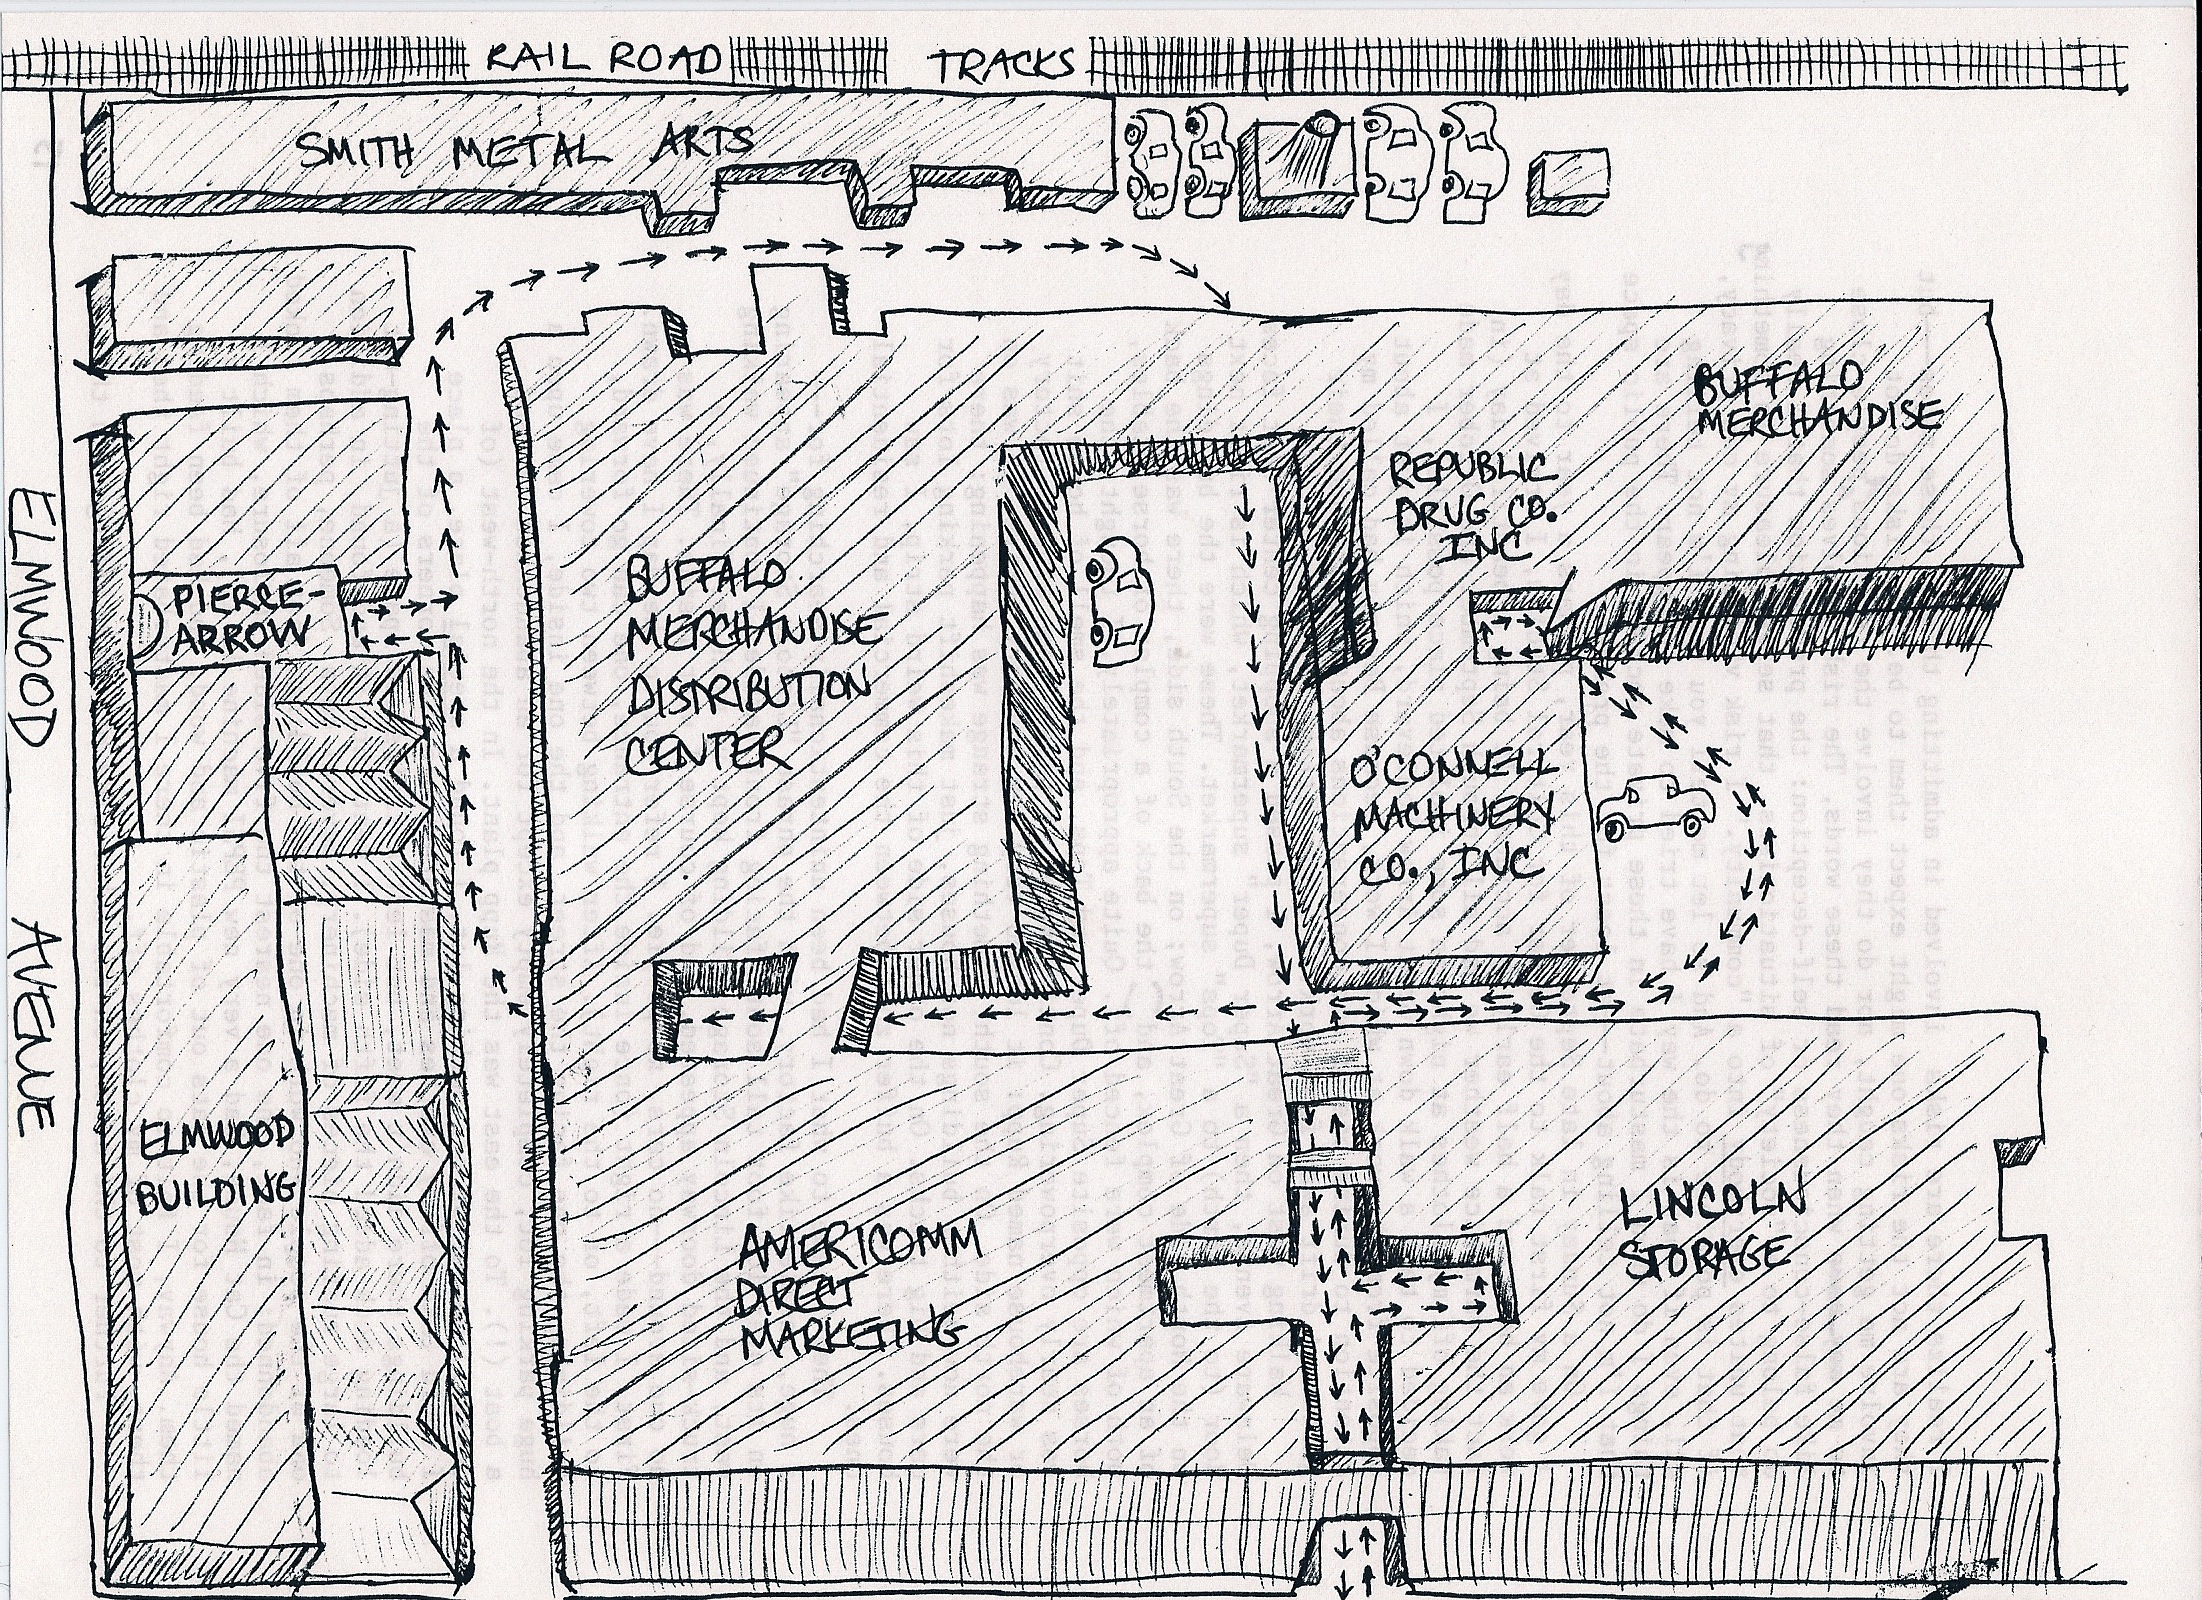 RAIL ROAD TRACKS
SMITH METAL ARTS
BUFFALO
MERCHANDISE
REPUBLIC
DRUG CO.
INC
PIERCE-
ARROW
BUFFALO
MERCHANDISE
DISTRIBUTION
CENTER
O'CONNELL
MACHINERY
CO., INC
ELMWOOD AVENUE
ELMWOOD
BUILDING
AMERICOMM
DIRECT
MARKETING
LINCOLN
STORAGE